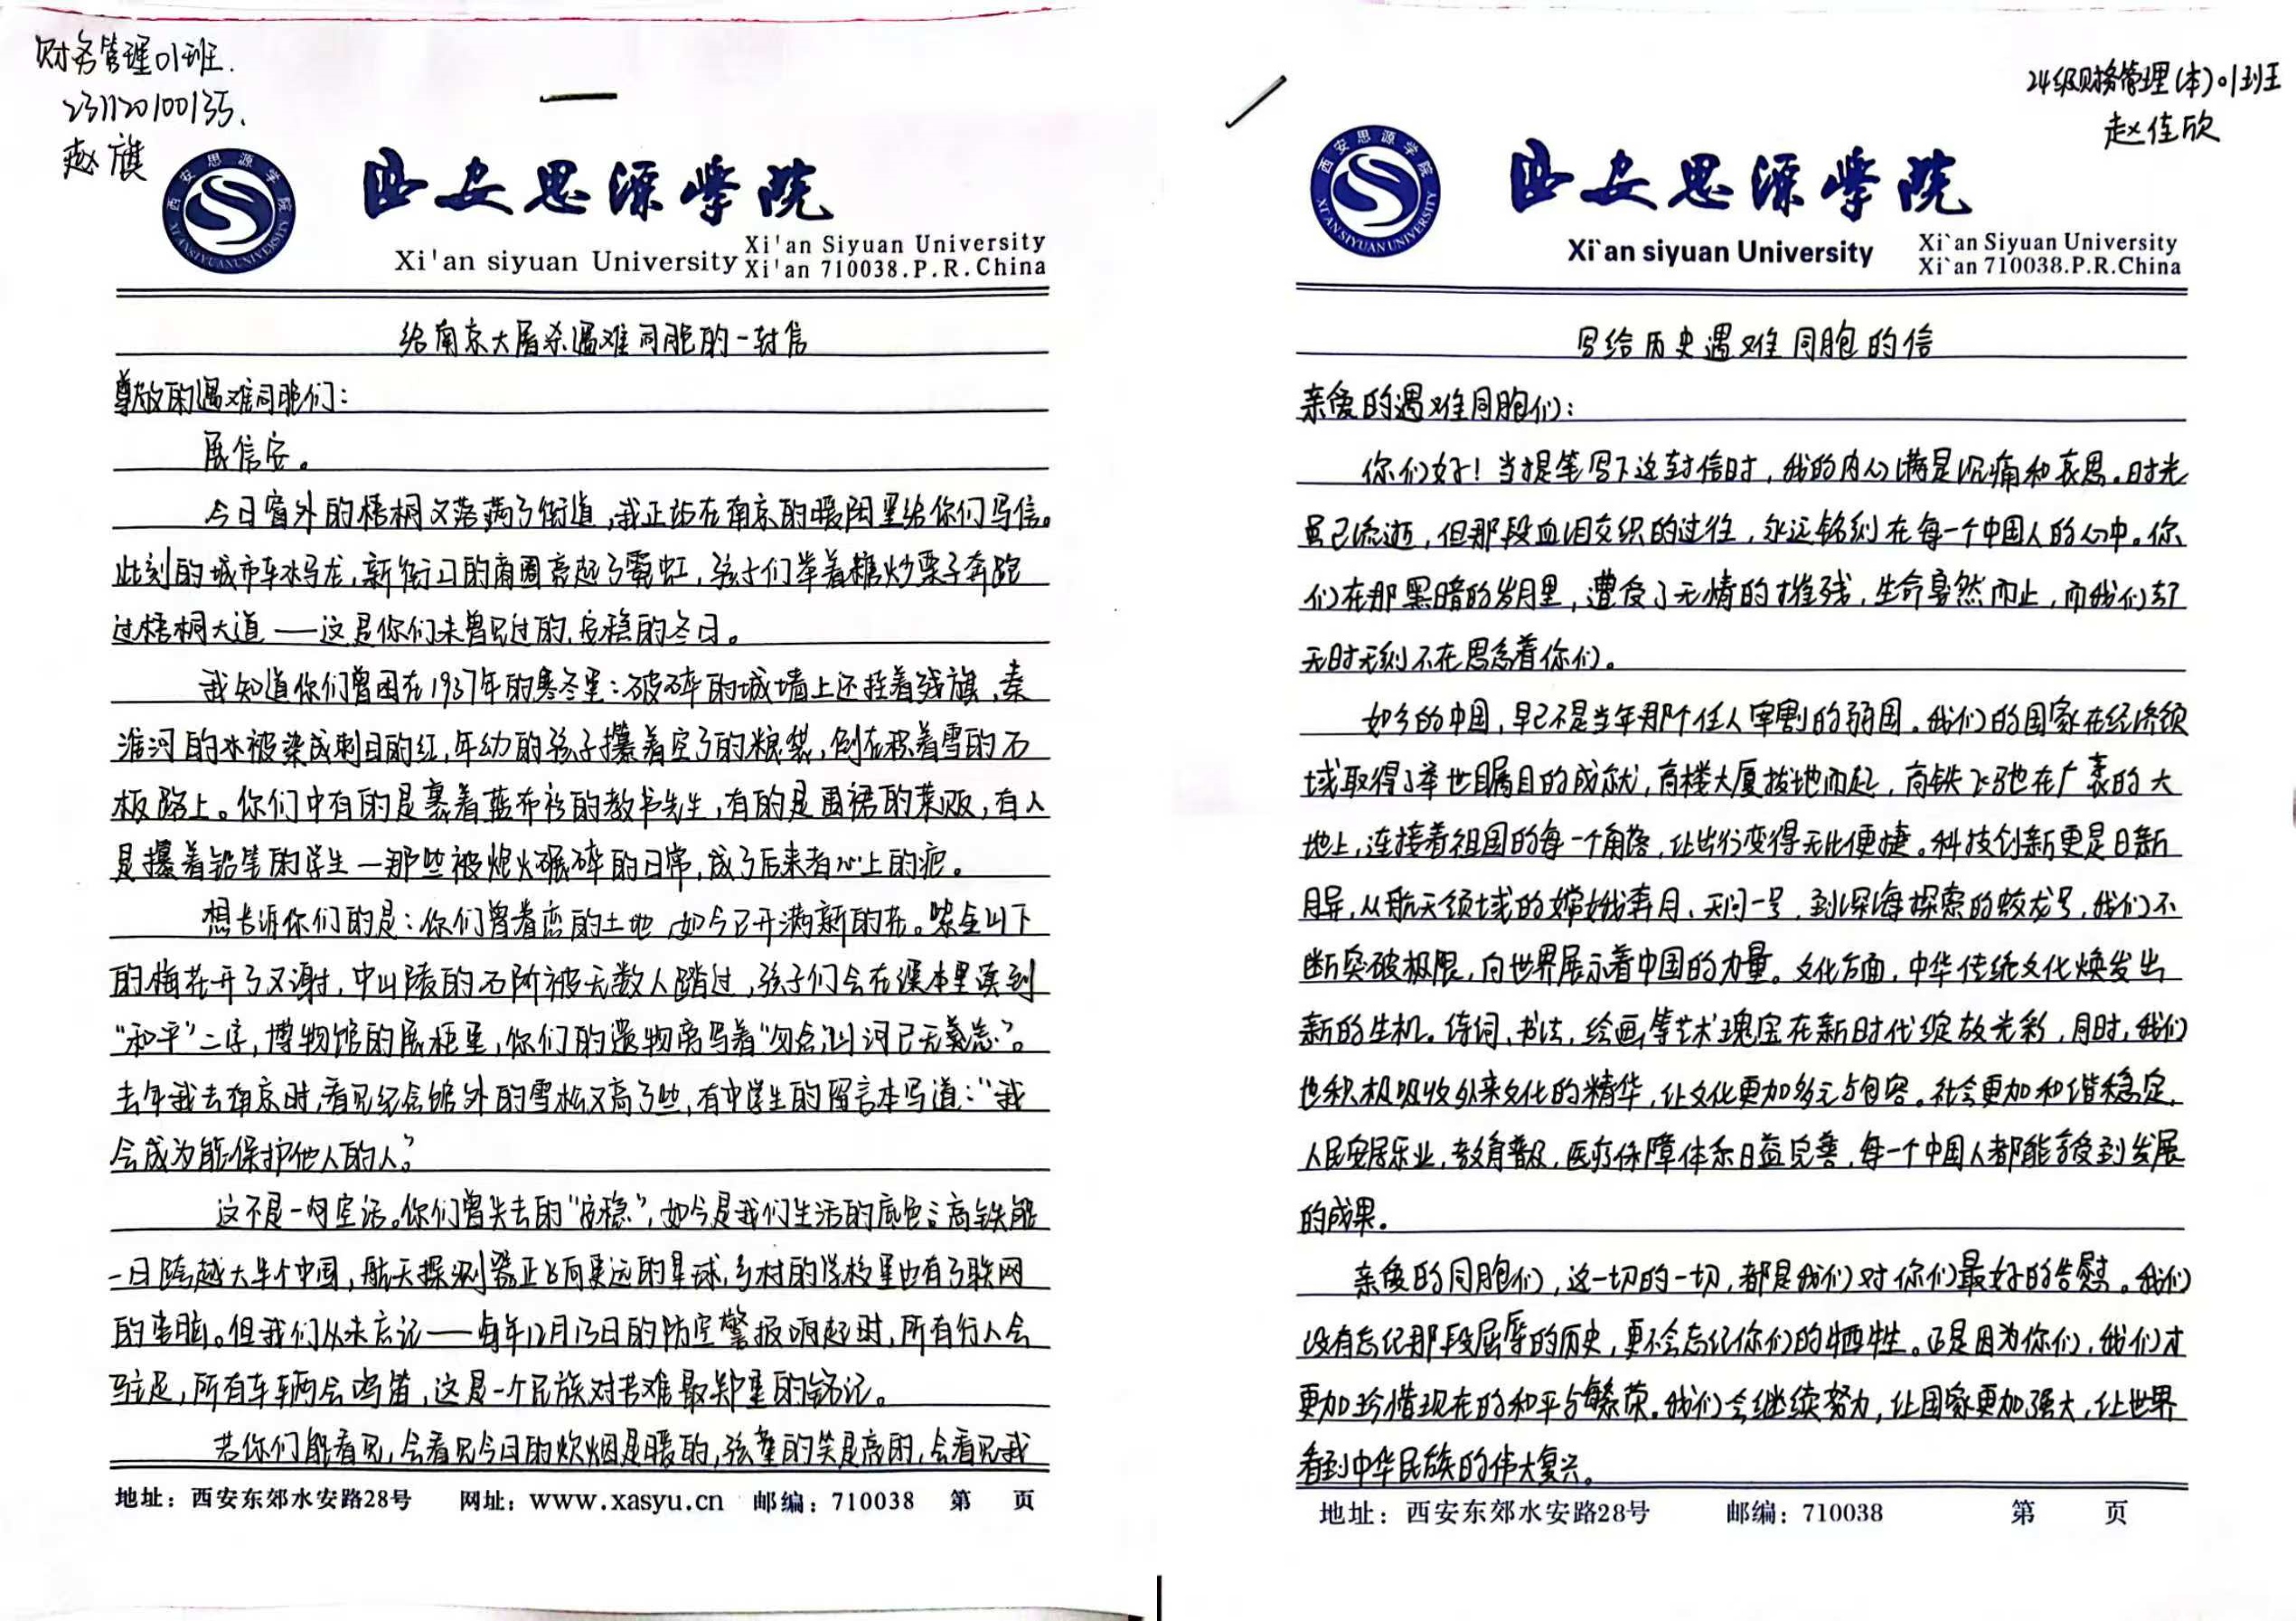 财务管理01班.
231120100135.
赵旗
西安思源学院
XI'AN SIYUAN UNIVERSITY
西安思源学院
Xi'an siyuan University
Xi'an Siyuan University
Xi'an 710038.P.R.China
给南京大屠杀遇难同胞的一封信
尊敬的遇难同胞们：
展信安。
今日窗外的梧桐又落满了街道，我正站在南京的暖阳里给你们写信。
此刻的城市车水马龙，新街口的商圈亮起了霓虹，孩子们举着糖炒栗子奔跑
过梧桐大道——这是你们未曾见过的，安稳的冬日。
我知道你们曾困在1937年的寒冬里：破碎的城墙上还挂着残旗，秦
淮河的水被染成刺目的红，年幼的孩子攥着空了的粮袋，倒在积着雪的石
板路上。你们中有的是裹着蓝布衫的教书先生，有的是围裙的菜贩，有人
是攥着铅笔的学生—那些被炮火碾碎的日常，成了后来者心上的疤。
想告诉你们的是：你们曾眷恋的土地，如今已开满新的花。紫金山下
的梅花开了又谢，中山陵的石阶被无数人踏过，孩子们会在课本里读到
“和平”二字，博物馆的展柜里，你们的遗物旁写着“勿念，山河已无恙”。
去年我去南京时，看见纪念馆外的雪松又高了些，有中学生的留言本写道：“我
会成为能保护他人的人”
这不是一句空话。你们曾失去的“安稳”，如今是我们生活的底色：高铁能
一日跨越大半个中国，航天探测器正飞向更远的星球，乡村的学校里也有了联网
的电脑。但我们从未忘记——每年12月13日的防空警报响起时，所有行人会
驻足，所有车辆会鸣笛，这是一个民族对苦难最郑重的铭记。
若你们能看见，会看见今日的炊烟是暖的，孩童的笑是亮的，会看见我
地址：西安东郊水安路28号 网址：www.xasyu.cn 邮编：710038 第 页
24级财务管理(本)01班
赵佳欣
西安思源学院
XI'AN SIYUAN UNIVERSITY
西安思源学院
Xi`an siyuan University
Xi`an Siyuan University
Xi`an 710038.P.R.China
写给历史遇难同胞的信
亲爱的遇难同胞们：
你们好！当提笔写下这封信时，我的内心满是沉痛和哀思。时光
虽已流逝，但那段血泪交织的过往，永远铭刻在每一个中国人的心中。你
们在那黑暗的岁月里，遭受了无情的摧残，生命戛然而止，而我们却
无时无刻不在思念着你们。
如今的中国，早已不是当年那个任人宰割的弱国。我们的国家在经济领
域取得了举世瞩目的成就，高楼大厦拔地而起，高铁飞驰在广袤的大
地上，连接着祖国的每一个角落，让出行变得无比便捷。科技创新更是日新
月异，从航天领域的嫦娥奔月、天问一号，到深海探索的蛟龙号，我们不
断突破极限，向世界展示着中国的力量。文化方面，中华传统文化焕发出
新的生机。诗词、书法，绘画等艺术瑰宝在新时代绽放光彩，同时，我们
也积极吸收外来文化的精华，让文化更加多元与包容。社会更加和谐稳定，
人民安居乐业，教育普及，医疗保障体系日益完善，每一个中国人都能享受到发展
的成果。
亲爱的同胞们，这一切的一切，都是我们对你们最好的告慰。我们
没有忘记那段屈辱的历史，更不会忘记你们的牺牲。正是因为你们，我们才
更加珍惜现在的和平与繁荣。我们会继续努力，让国家更加强大，让世界
看到中华民族的伟大复兴。
地址：西安东郊水安路28号 邮编：710038 第 页